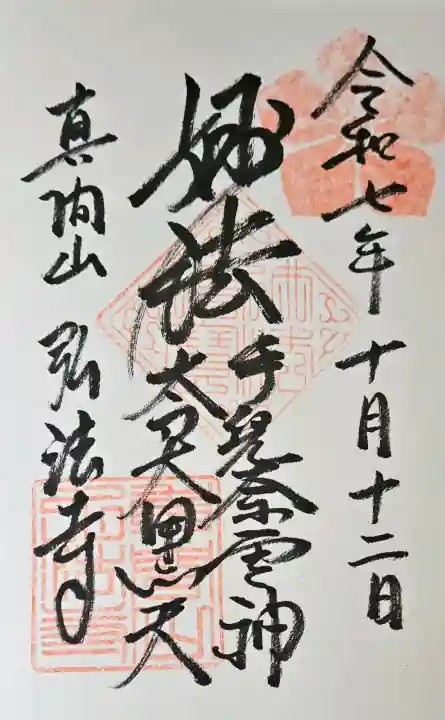 令和七年十月十二日
妙法
手児奈霊神
太刀大黒天
真間山 弘法寺